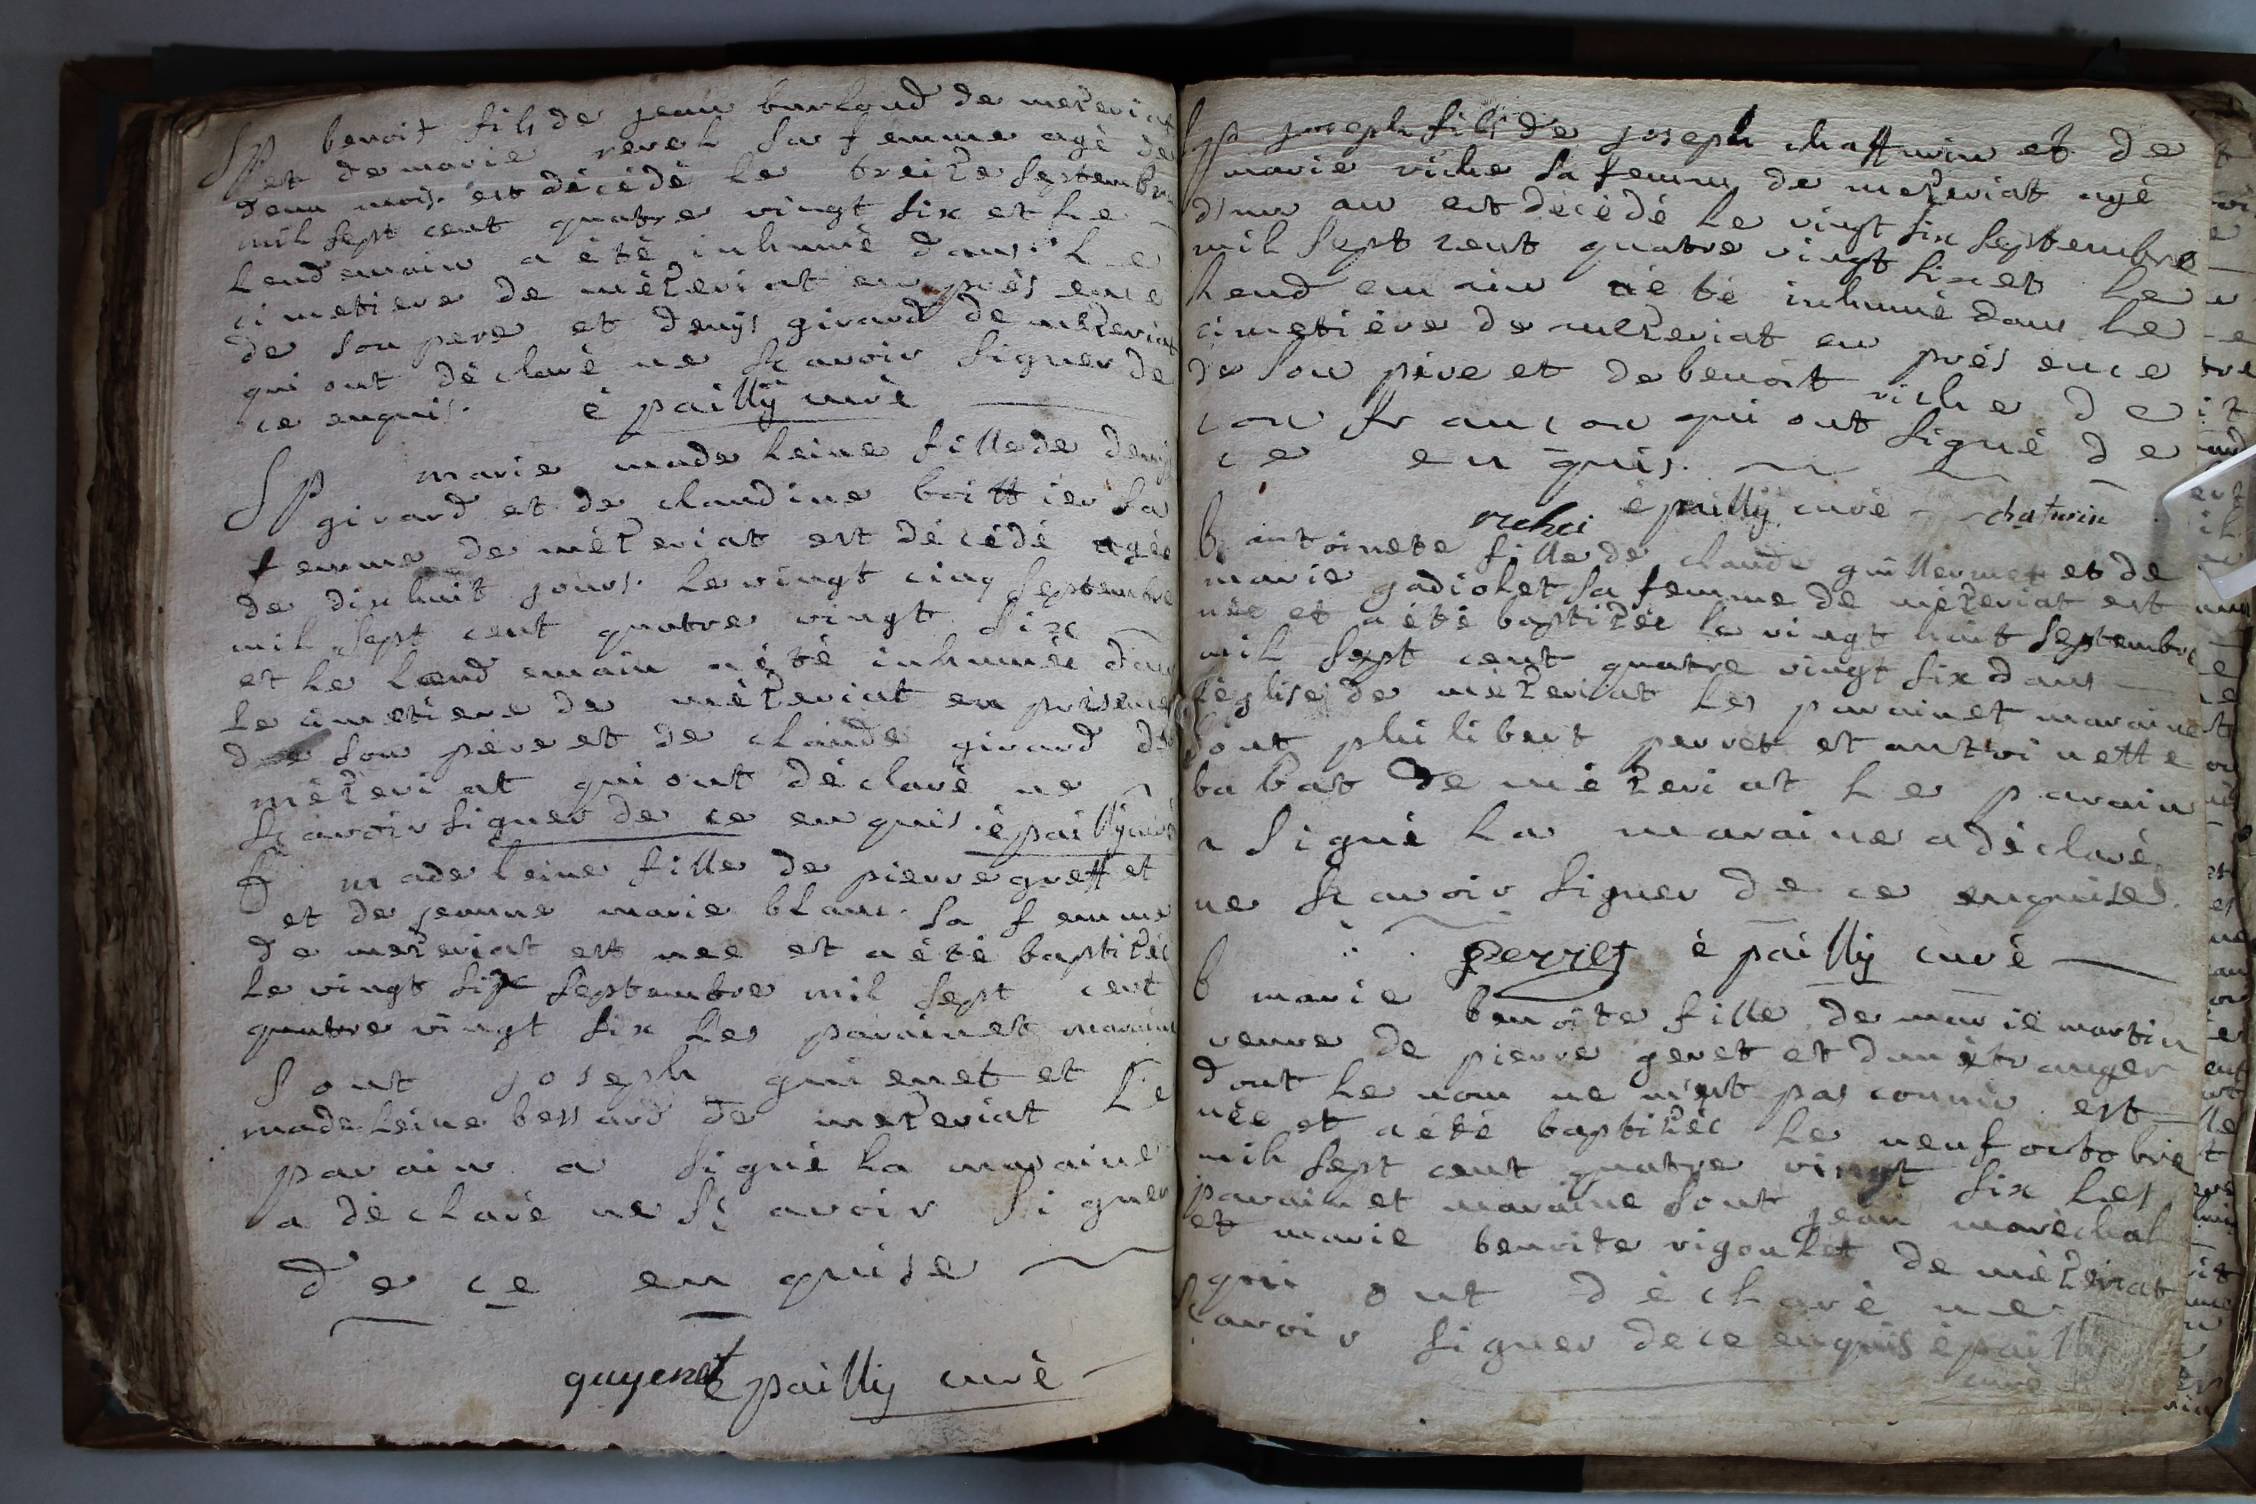 Sp benoit fils de jean burloud de mezeriat
et de marie revel sa femme agé de
deux mois est décédé le treize septembre
mil sept cent quatre vingt six et le
lendemain a été inhumé dans le
cimetiere de mézeriat en présence
de son pere et denys girard de mezeriat
qui ont déclaré ne scavoir signer de
ce enquis. épailly curé
Sp marie madeleine fille de denys
girard et de claudine boittier sa
femme de mézeriat est décédé agée
de dixhuit jours le vingt cinq septembre
mil sept cent quatre vingt six
et le lendemain a été inhumée dans
le cimetiere de mézeriat en présence
de son père et de claude girard de
mézeriat qui ont déclaré ne
scavoir signer de ce enquis. épailly curé
B madeleine fille de pierre grett et
et de jeanne marie blanc sa femme
de mezeriat est nee et a été baptizée
le vingt six septembre mil sept cent
quatre vingt six les parain et maraine
sont joseph guienet et
madeleine bessard de mezeriat Le
parain a signé la maraine
a déclaré ne scavoir signer
de ce enquise
guyenet épailly curé
Sp joseph fils de joseph chattwin et de
marie riche sa femme de mezeriat agé
d'un an est décédé le vingt six septembre
mil sept cent quatre vingt six et le
lendemain a été inhumé dans le
cimetière de mezeriat en présence
de son père et de benoit riche de
confrancon qui ont signé de
ce enquis.
épailly curé chatwin
richei
b antoinete fille de claude guillermet et de
marie gadiolet sa femme de mézeriat est
née et a été baptizée le vingt huit septembre
mil sept cent quatre vingt six dans
l'église de mézeriat les parain et maraine
sont philibert perret et antoinette
babat de mézeriat le parain
a signé la maraine a déclaré
ne scavoir signer de ce enquise.
perret épailly curé
b marie benoite fille de marie martin
veuve de pierre geret et d'un étranger
dont le nom ne m'est pas connu est
née et a été baptizée le neuf octobre
mil sept cent quatre vingt six les
parain et maraine sont jean maréchal
et marie benoite rigoulet de mézeriat
qui ont déclaré ne
scavoir signer de ce enquis épailly
curé